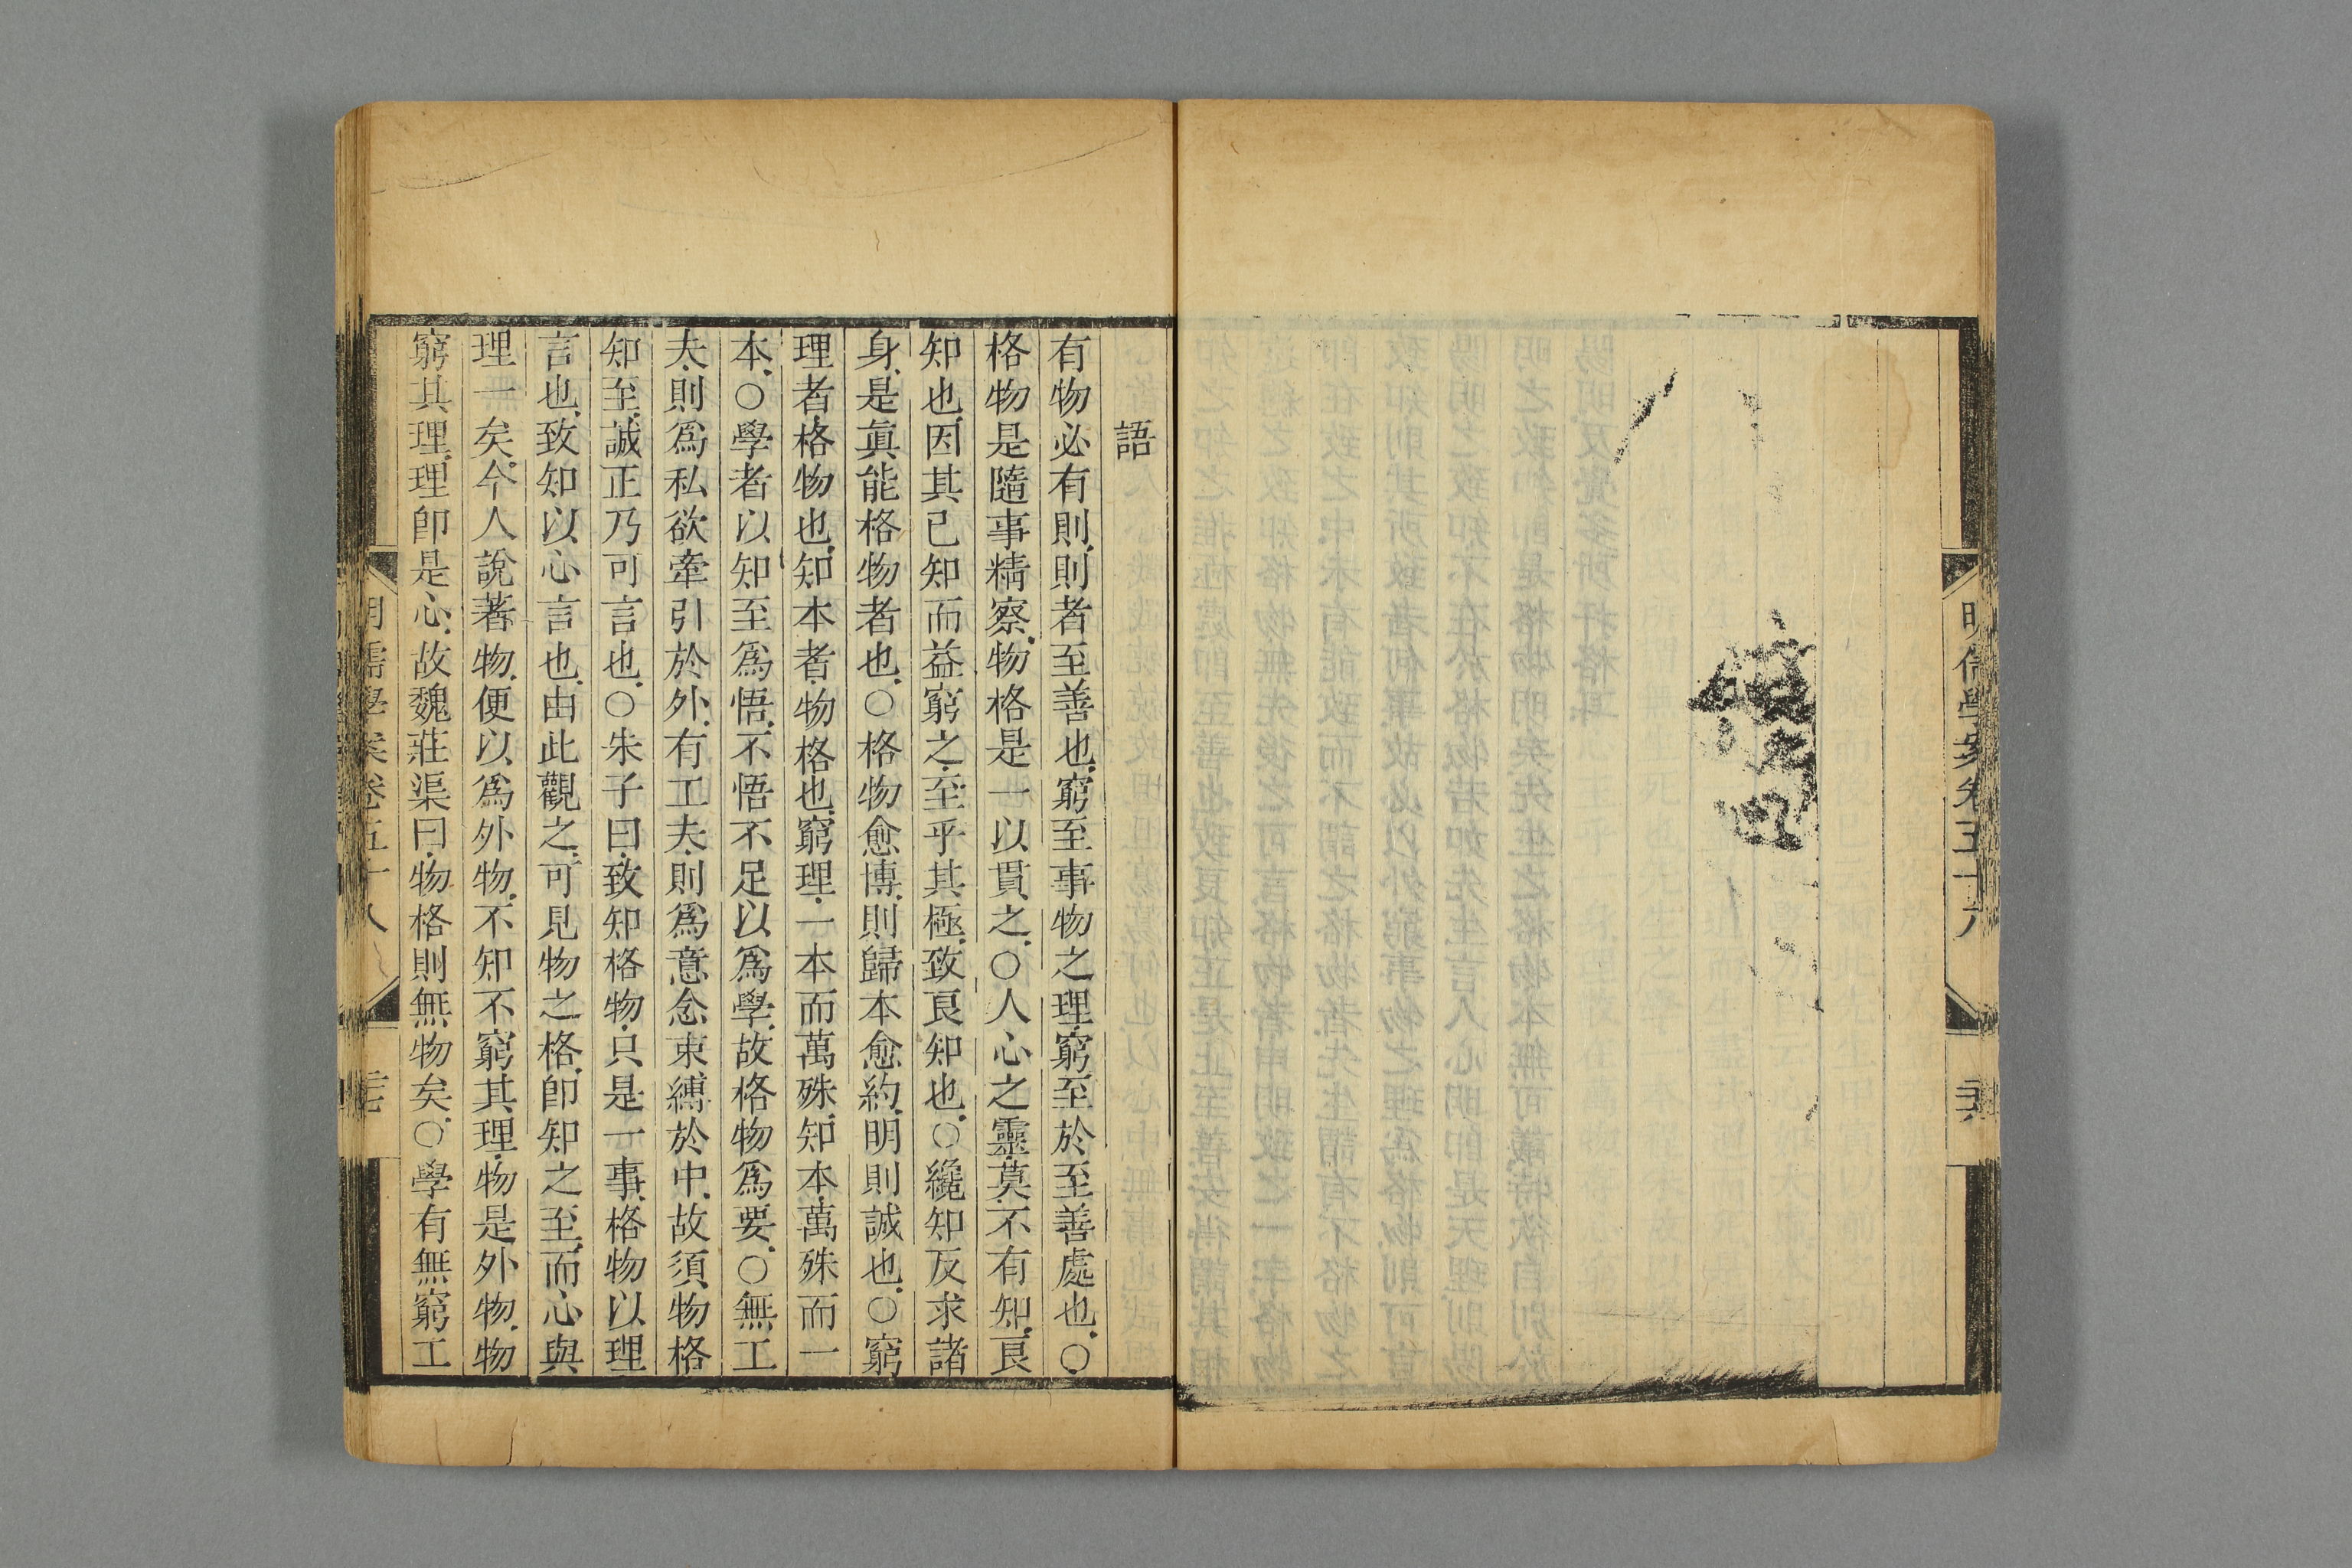 語
有物必有則則者至善也窮至事物之理窮至於至善處也○
格物是隨事精察物格是一以貫之○人心之靈莫不有知良
知也因其已知而益窮之至乎其極致良知也○纔知反求諸
身是眞能格物者也○格物愈博則歸本愈約明則誠也○窮
理者格物也知本者物格也窮理一本而萬殊知本萬殊而一
本○學者以知至爲悟不悟不足以爲學故格物爲要○無工
夫則爲私欲牽引於外有工夫則爲意念束縛於中故須物格
知至誠正乃可言也○朱子曰致知格物只是一事格物以理
言也致知以心言也由此觀之可見物之格卽知之至而心與
理一矣今人說著物便以爲外物不知不窮其理物是外物物
窮其理理卽是心故魏莊渠曰物格則無物矣○學有無窮工
明儒學案卷五十八